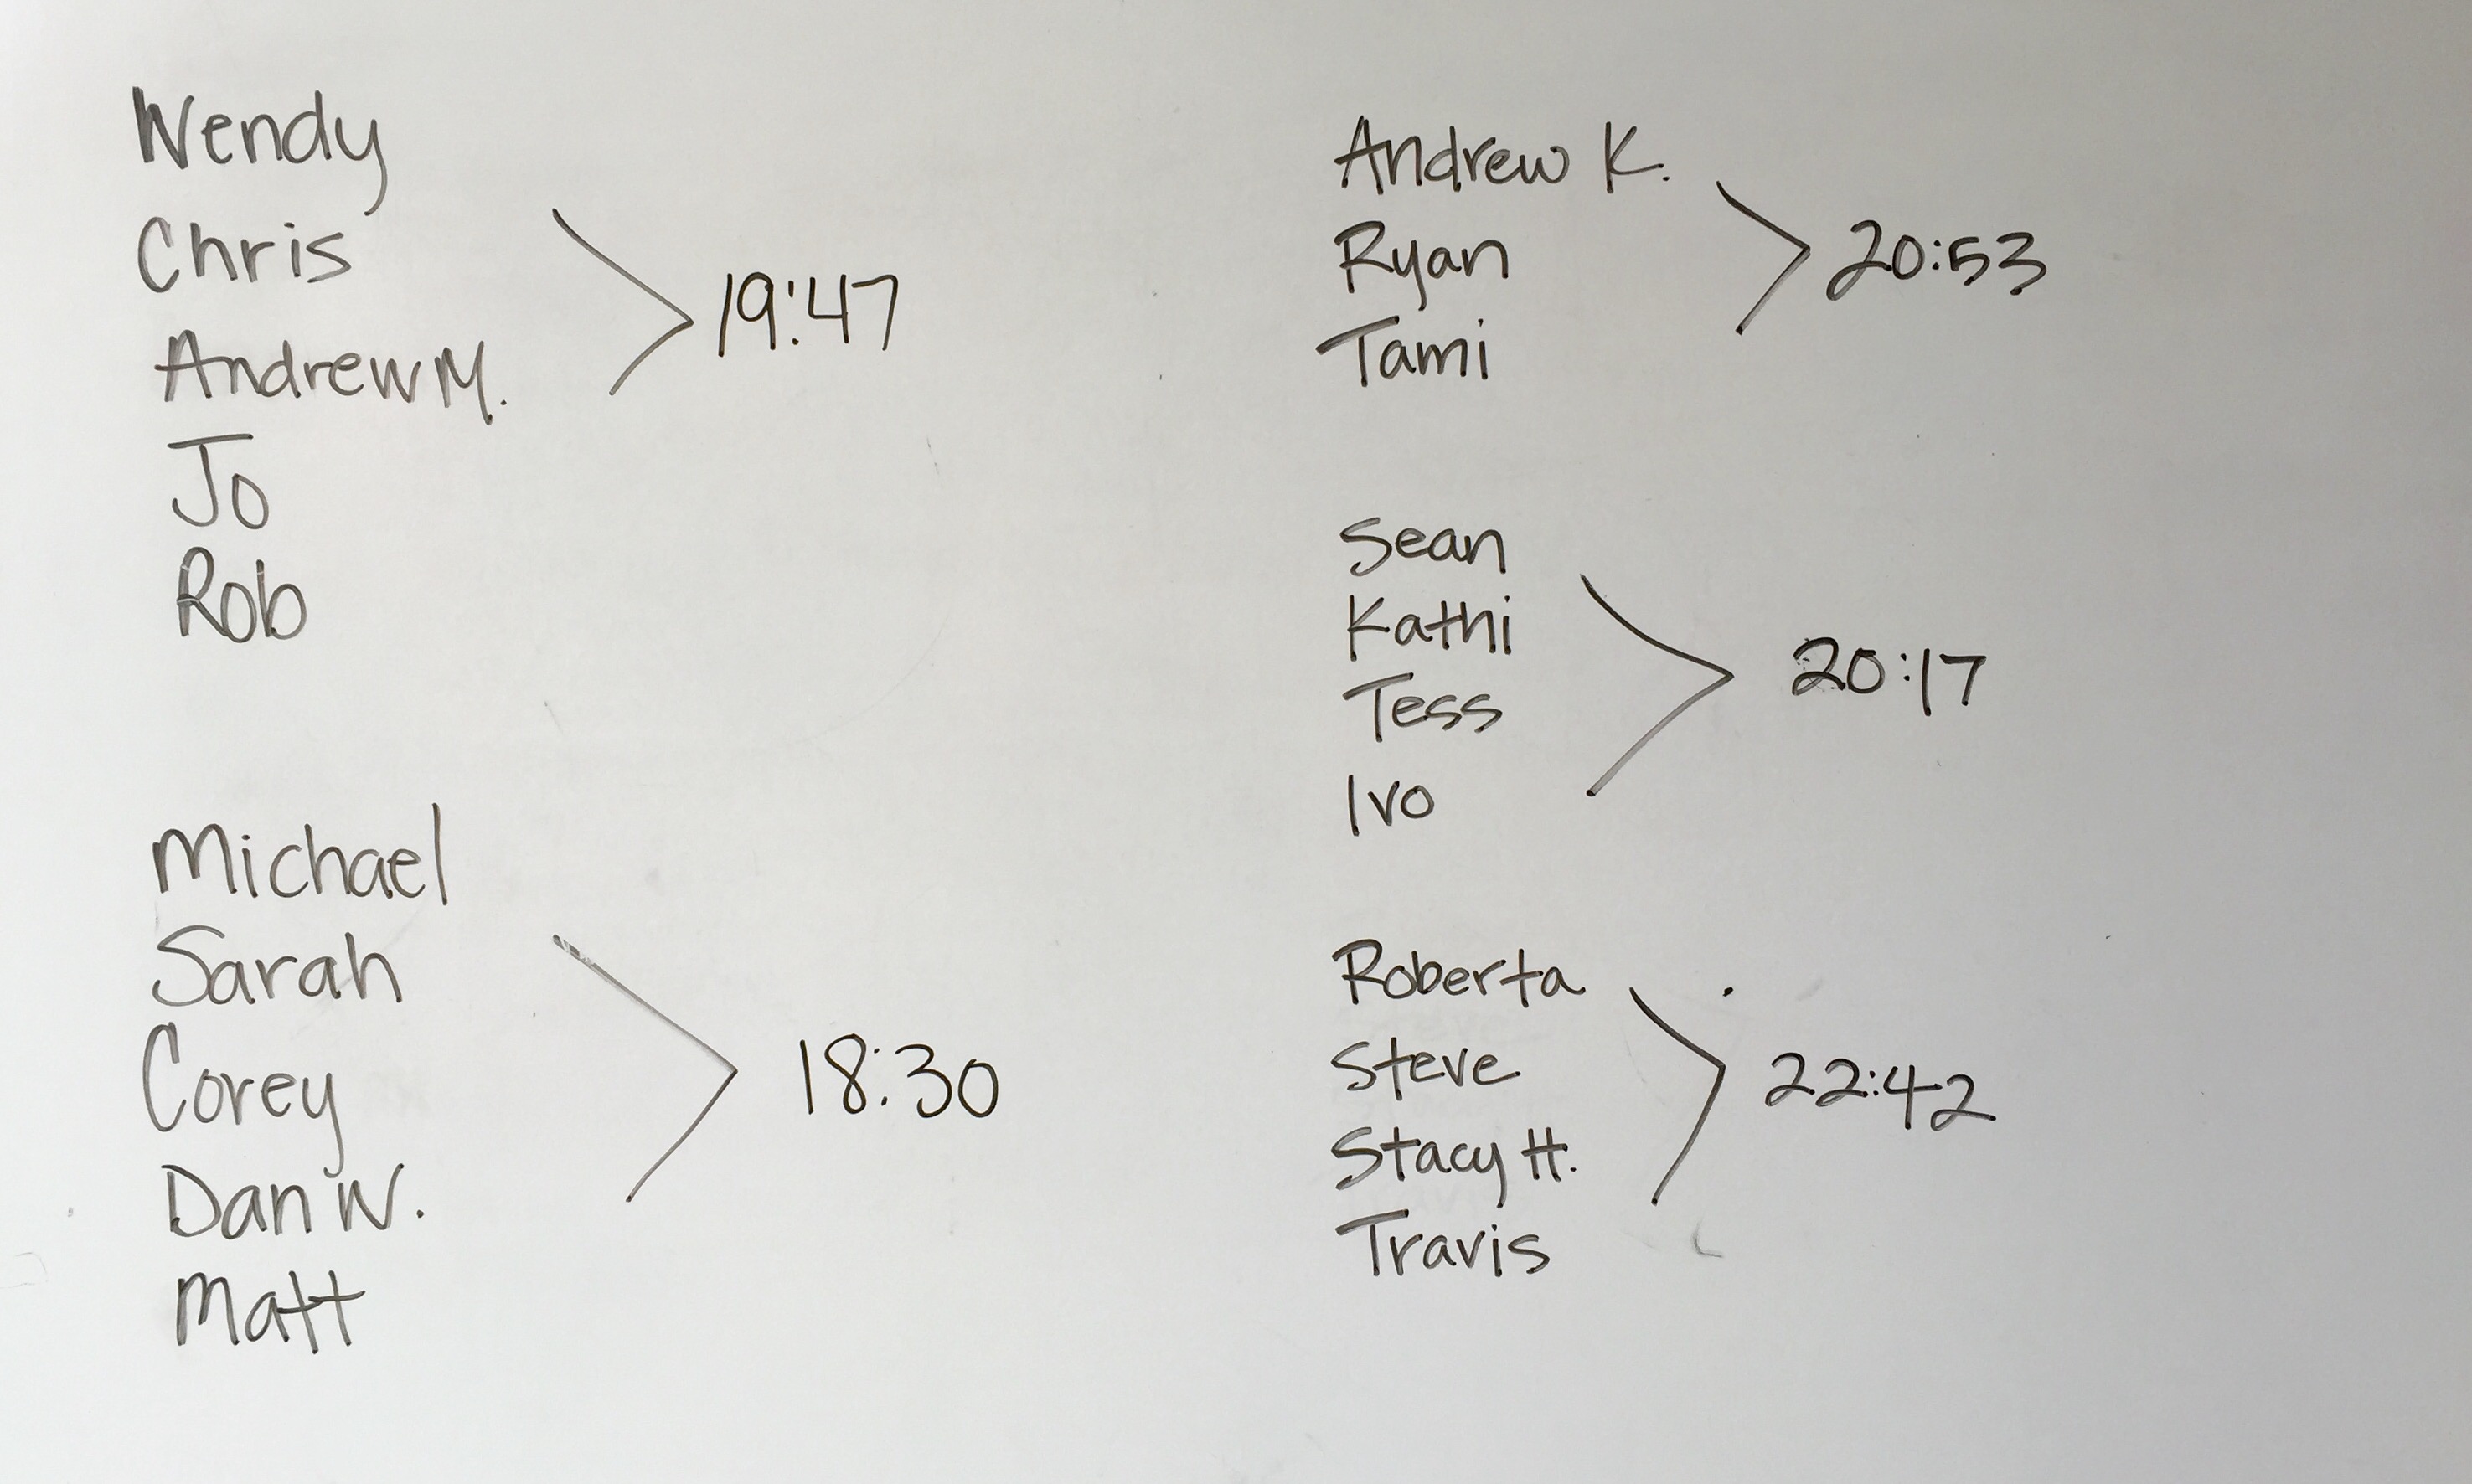 Wendy
Chris
Andrew M.
Jo
Rob
19:47
Michael
Sarah
Corey
Dan W.
Matt
18:30
Andrew K.
Ryan
Tami
20:53
Sean
Kathi
Tess
Ivo
20:17
Roberta
Steve
Stacy H.
Travis
22:42